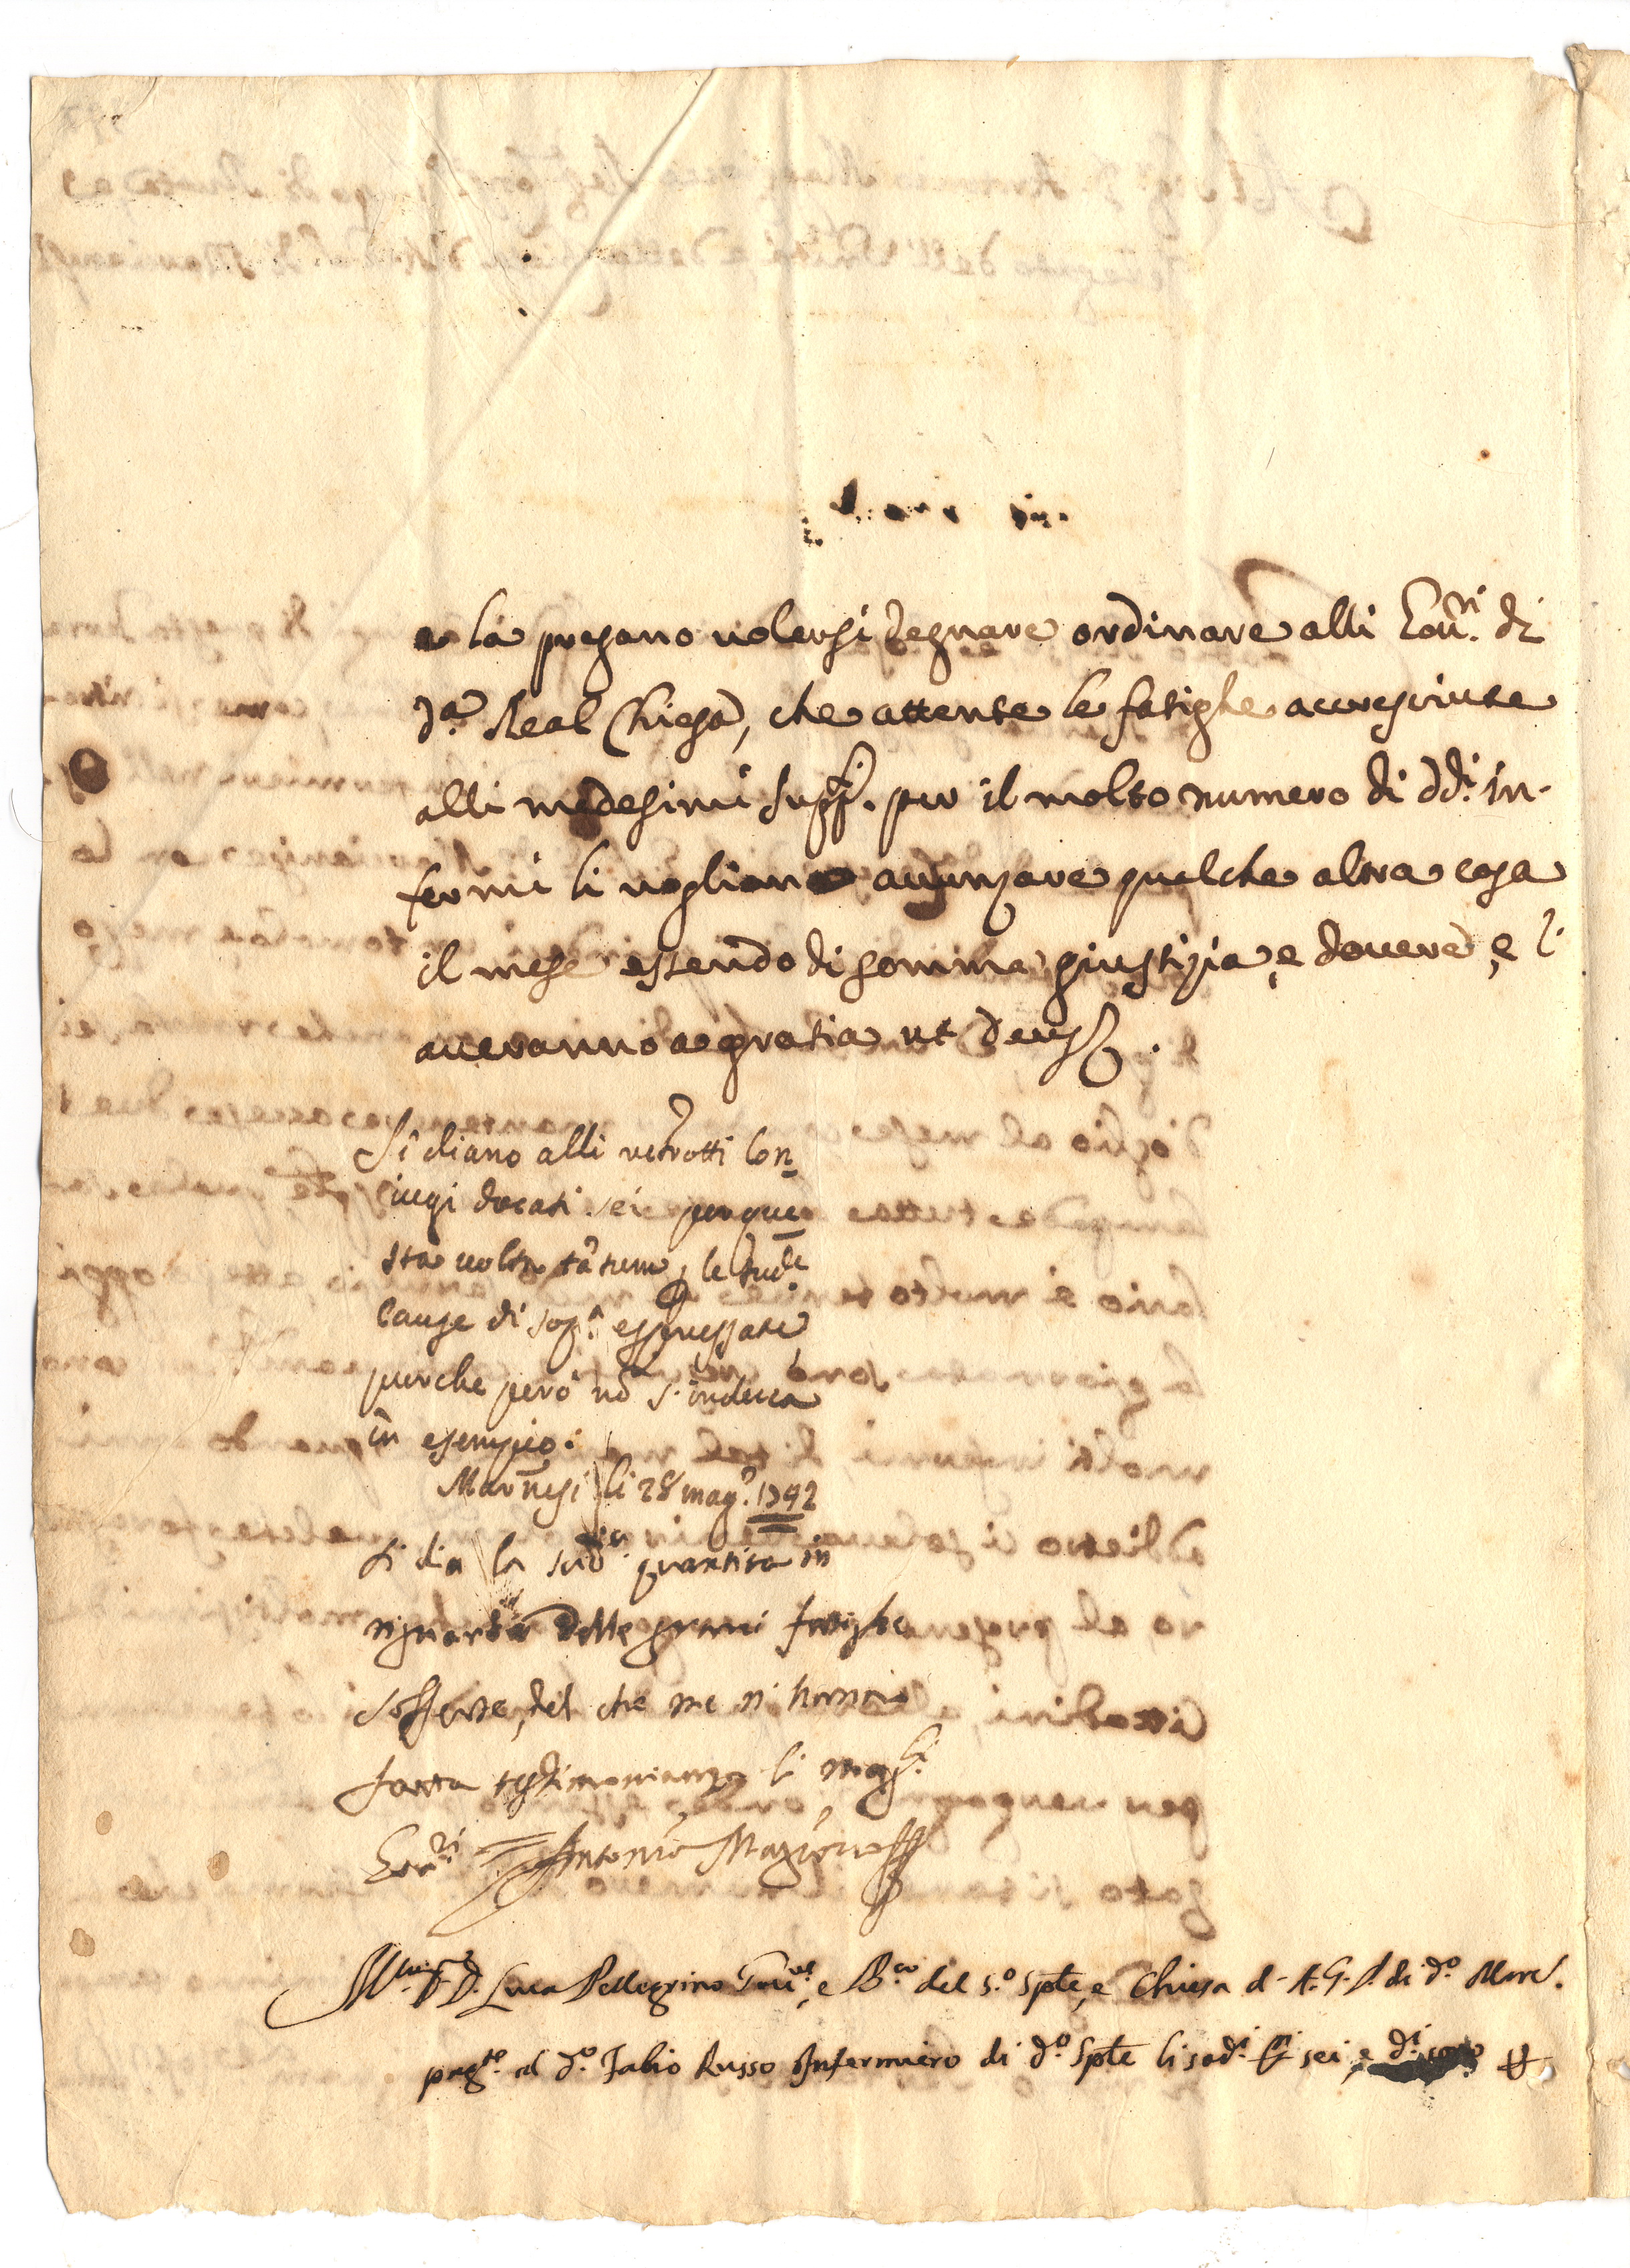 e la pregano volersi degnare ordinare alli Gov.ri di
d.a Real Chiesa, che attente le fatighe accresciute
alli medesimi supp.ti per il molto numero di dd.i in-
fermi li vogliano avanzare qualche altra cosa
il mese essendo di somma giustizia, e dovere, e l'
averanno a gratia ut Deus.
Si diano alli retrotti Con-
iugi docati sei per que-
sta volta tãtum, le sud.e
cause di sop.a espressate
purche però nõ s'induca
in esempio.
Marc.nesi li 28 mag.o 1742
si dia la sud.a quantita in
riguardo delle gravi fatighe
sofferte, del che me n'hanno
fatta testimonianza li mag.ci
Gov.ri Antonio
Mag.co D. Luca Pellegrino Gov.re, e B.co del s.o Sple, e Chiesa d. A. G. P. di d.o Marc.
pag.to al d.o Fabio Russo Infermiero di d.o Sple li sod.i d.ti sei, e d.i sono